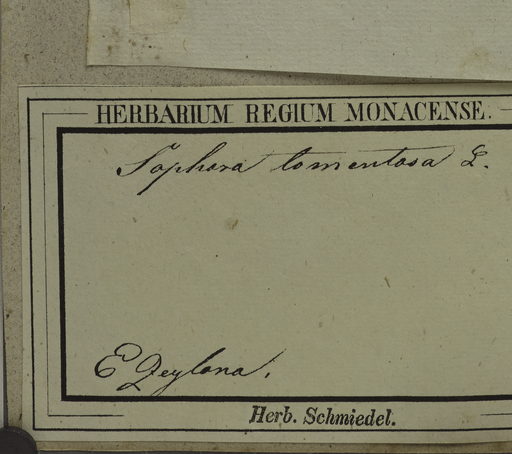 HERBARIUM REGIUM MONACENSE.
Sophora tomentosa L.
E Zeylona.
Herb. Schmiedel.